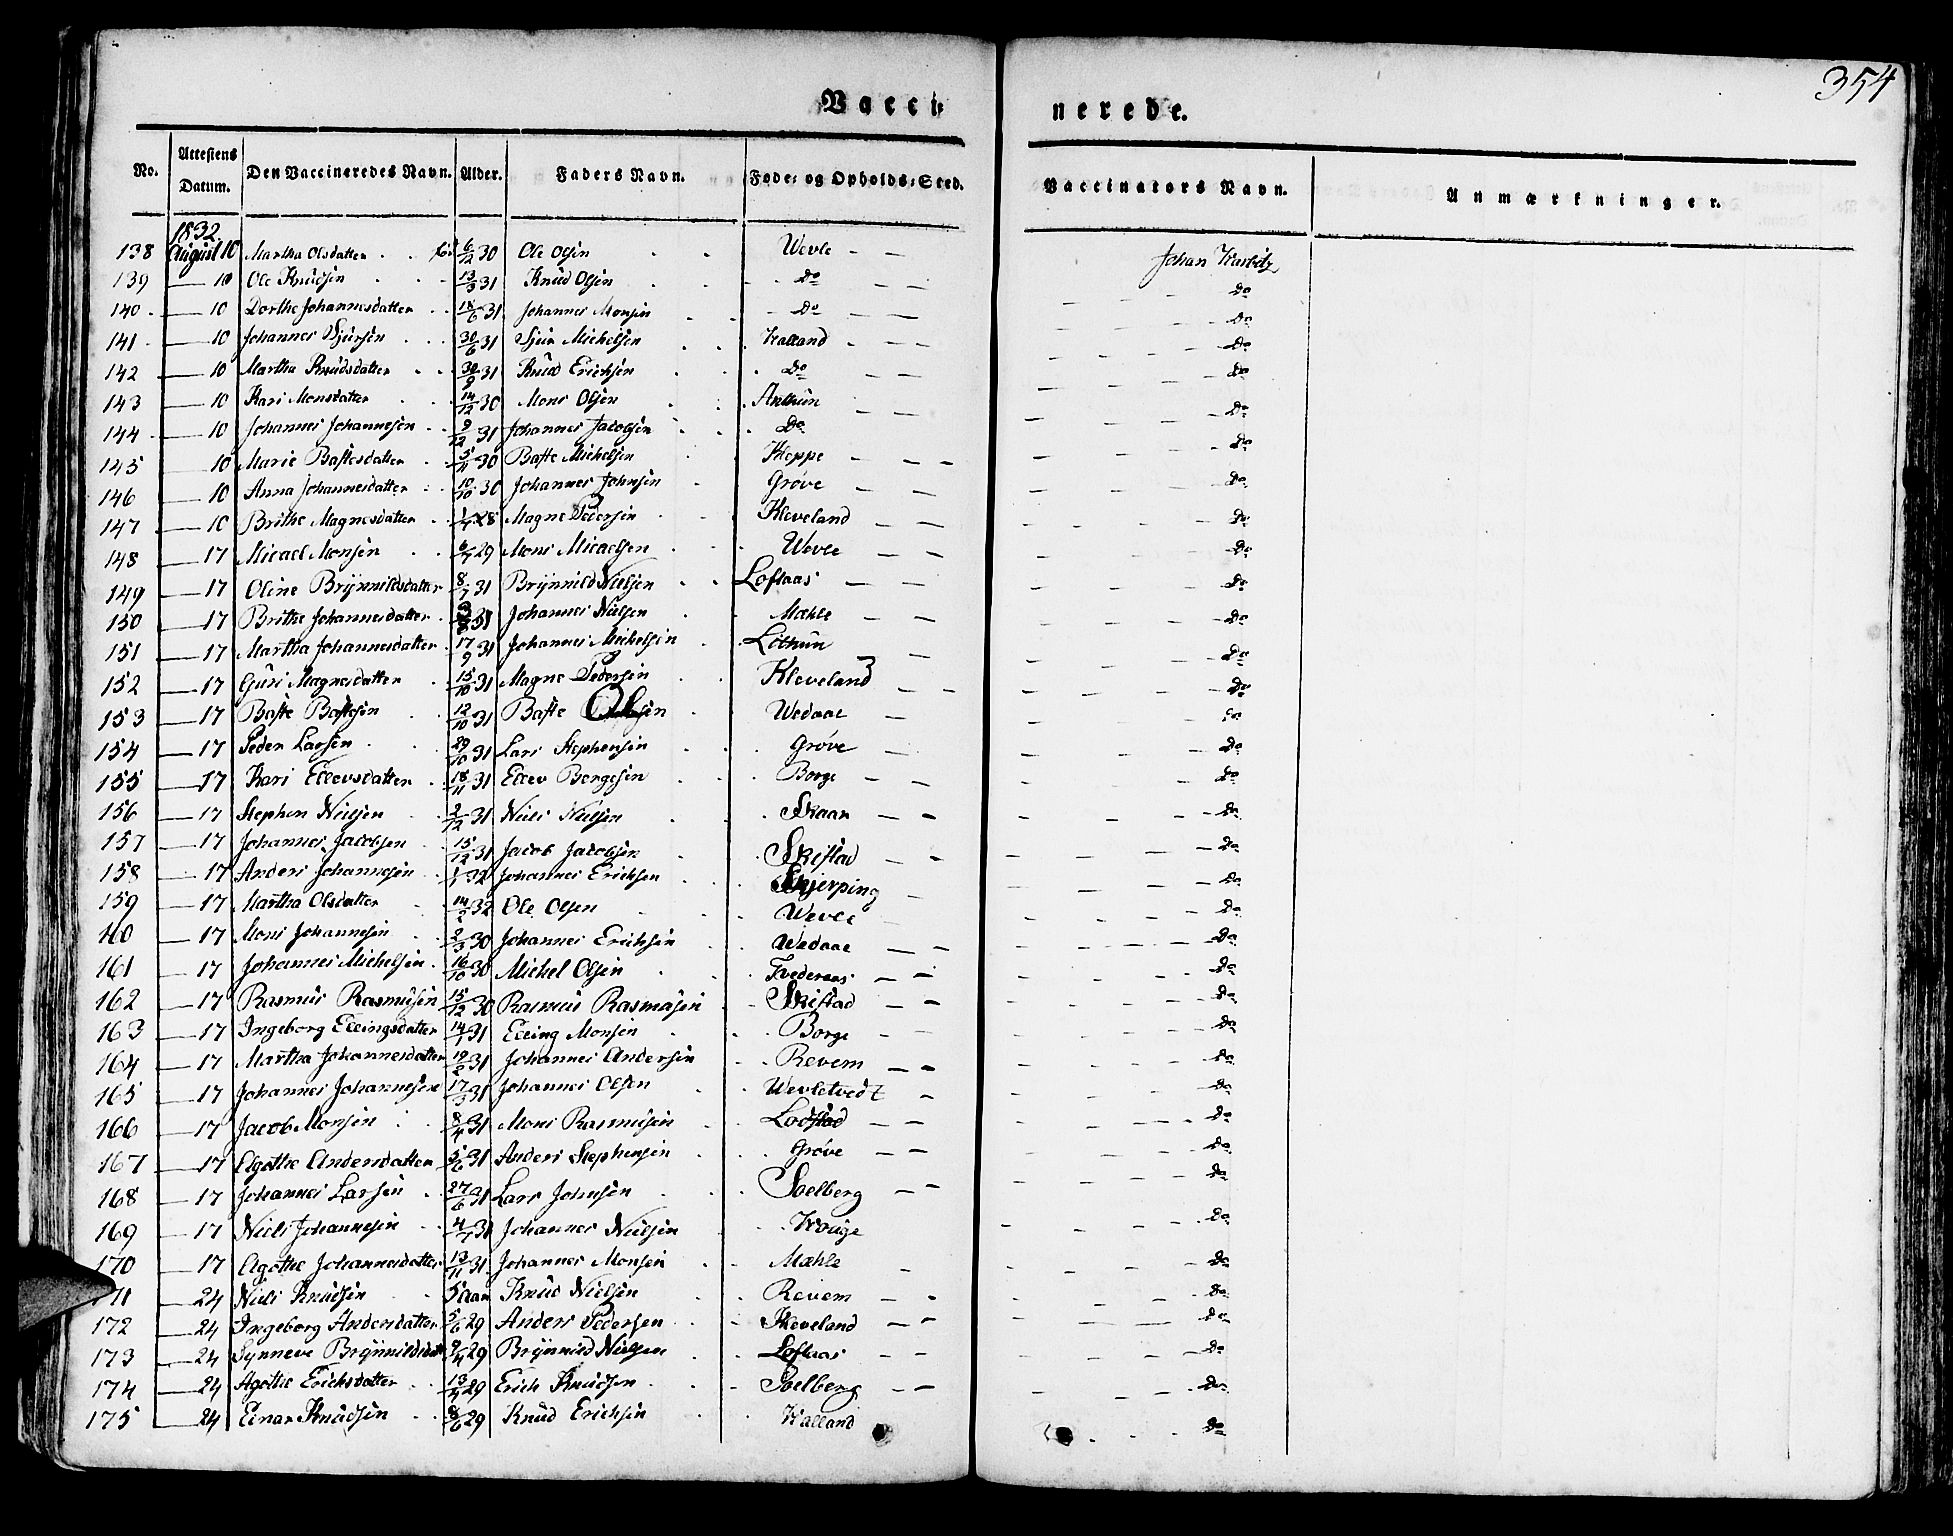 354
Vacci- nerede.
No. Attestens Datum. Den Vaccineredes Navn. Alder. Faders Navn. Føde- og Opholds-Sted. Vaccinators Navn. Anmærkninger.
1832
138 August 10 Martha Olsdatter 6/12 30 Ole Olsen Wevle Johan
139 — 10 Ole Knudsen 13/3 31 Knud Olsen do do
140 — 10 Dorthe Johannesdatter 18/6 31 Johannes Monsen do do
141 — 10 Johannes Sjursen 30/6 31 Sjur Michelsen Halland do
142 — 10 Martha Knudsdatter 30/9 31 Knud Erichsen do do
143 — 10 Kari Monsdatter 14/12 30 Mons Olsen Anthun do
144 — 10 Johannes Johannesen 9/12 31 Johannes Jacobsen do do
145 — 10 Marie Baftesdatter 5/11 30 Bafte Michelsen Kleppe do
146 — 10 Anna Johannesdatter 10/10 30 Johannes Johnsen Grøve do
147 — 10 Brithe Magnesdatter 1/7 28 Magne Pedersen Kleveland do
148 — 17 Micael Monsen 6/7 29 Mons Micaelsen Wevle do
149 — 17 Oline Brynnildsdatter 8/7 31 Brynnild Nielsen Loftaas do
150 — 17 Brithe Johannesdatter 31 Johannes Nielsen Mæhle do
151 — 17 Martha Johannesdatter 17/9 31 Johannes Michelsen Lithun do
152 — 17 Guri Magnesdatter 15/10 31 Magne Pedersen Kleveland do
153 — 17 Bafte Baftesen 12/10 31 Bafte Olsen Wedaae do
154 — 17 Peder Larsen 29/10 31 Lars Stephensen Grøve do
155 — 17 Kari Ellevsdatter 18/11 31 Ellev Borgesen Borge do
156 — 17 Stephen Nielsen 2/12 31 Niels Nielsen Skaar do
157 — 17 Johannes Jacobsen 15/12 31 Jacob Jacobsen Skistad do
158 — 17 Anders Johannesen 1/1 32 Johannes Erichsen Skjerping do
159 — 17 Martha Olsdatter 14/2 32 Ole Olsen Wevle do
160 — 17 Mons Johannesen 2/3 30 Johannes Erichsen Wedaae do
161 — 17 Johannes Michelsen 16/10 30 Michel Olsen Tvederaas do
162 — 17 Rasmus Rasmusen 15/12 30 Rasmus Rasmusen Skistad do
163 — 17 Ingeborg Ellingsdatter 14/1 31 Elling Monsen Borge do
164 — 17 Martha Johannesdatter 19/2 31 Johannes Andersen Revem do
165 — 17 Johannes Johannesen 17/3 31 Johannes Olsen Wevletvedt do
166 — 17 Jacob Monsen 8/4 31 Mons Rasmusen Lodstad do
167 — 17 Agathe Andersdatter 5/6 31 Anders Stephensen Grøve do
168 — 17 Johannes Larsen 27/6 31 Lars Johnsen Soelberg do
169 — 17 Niels Johannesen 4/7 31 Johannes Nielsen Houge do
170 — 17 Agathe Johannesdatter 13/11 31 Johannes Monsen Mæhle do
171 — 24 Niels Knudsen 5 aar Knud Nielsen Revem do
172 — 24 Ingeborg Andersdatter 5/6 29 Anders Pedersen Kleveland do
173 — 24 Synneve Brynnildsdatt 9/4 29 Brynnild Nielsen Loftaas do
174 — 24 Agathe Erichsdatter 13/7 29 Erich Knudsen Soelberg do
175 — 24 Einar Knudsen 8/6 29 Knud Erichsen Halland do